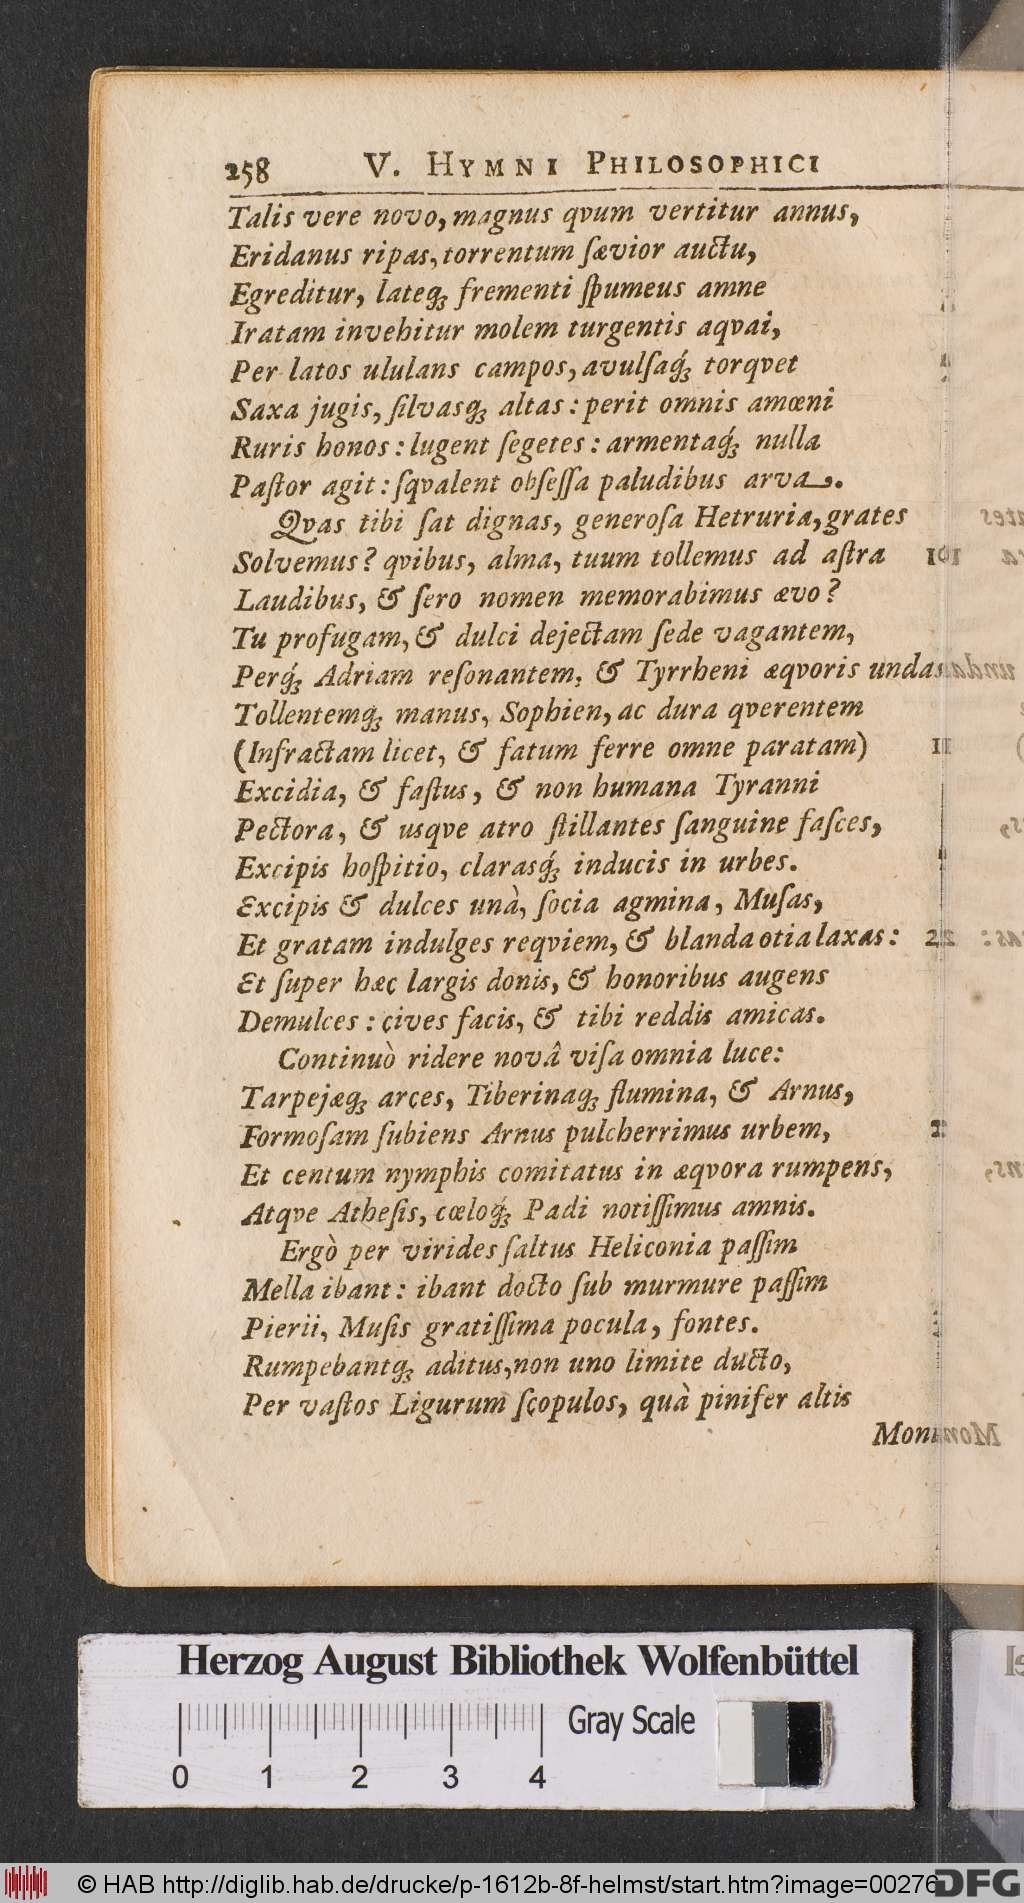 258 V. HYMNI PHILOSOPHICI
Talis vere novo, magnus qvum vertitur annus,
Eridanus ripas, torrentum sævior auctu,
Egreditur, lateq́; frementi ſpumeus amne
Iratam invehitur molem turgentis aqvai,
Per latos ululans campos, avulſaq́; torqvet
Saxa jugis, ſilvasq́; altas: perit omnis amœni
Ruris honos: lugent ſegetes: armentaq́; nulla
Paſtor agit: ſqvalent obſeſſa paludibus arva.
Qvas tibi ſat dignas, generoſa Hetruria, grates
Solvemus? qvibus, alma, tuum tollemus ad aſtra
Laudibus, & ſero nomen memorabimus ævo?
Tu profugam, & dulci dejectam ſede vagantem,
Perq́; Adriam reſonantem, & Tyrrheni æqvoris undas
Tollentemq́; manus, Sophien, ac dura qverentem
(Infractam licet, & fatum ferre omne paratam)
Excidia, & faſtus, & non humana Tyranni
Pectora, & usqve atro ſtillantes ſanguine faſces,
Excipis hoſpitio, clarasq́; inducis in urbes.
Excipis & dulces unà, ſocia agmina, Muſas,
Et gratam indulges reqviem, & blanda otia laxas:
Et ſuper hæc largis donis, & honoribus augens
Demulces: cives facis, & tibi reddis amicas.
Continuò ridere novâ viſa omnia luce:
Tarpejæq́; arces, Tiberinaq́; flumina, & Arnus,
Formoſam ſubiens Arnus pulcherrimus urbem,
Et centum nymphis comitatus in æqvora rumpens,
Atqve Atheſis, cœloq́; Padi notiſſimus amnis.
Ergò per virides ſaltus Heliconia paſſim
Mella ibant: ibant docto ſub murmure paſſim
Pierii, Muſis gratiſſima pocula, fontes.
Rumpebantq́; aditus, non uno limite ducto,
Per vaſtos Ligurum ſcopulos, quà pinifer altis
Herzog August Bibliothek Wolfenbüttel
Gray Scale
0 1 2 3 4
© HAB http://diglib.hab.de/drucke/p-1612b-8f-helmst/start.htm?image=00276
DFG